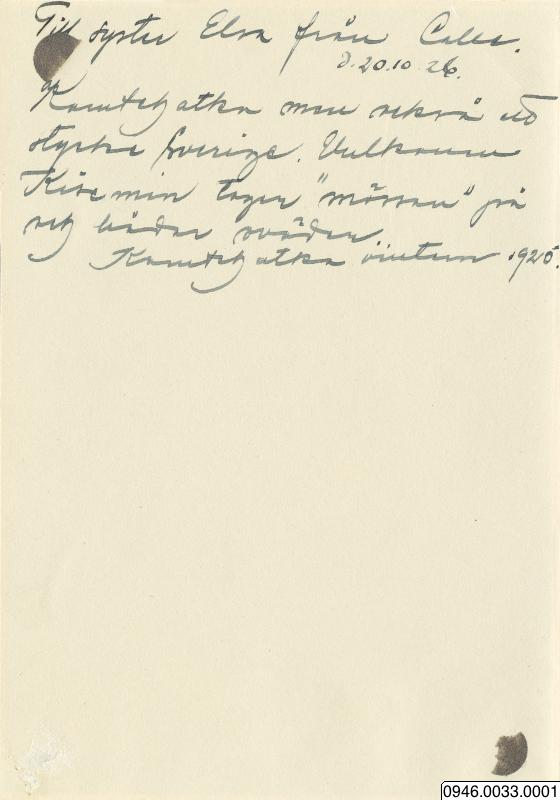 Till syster Elsa från Calle.
d. 20.10.26.
Kamtchatka men också ett
stycke Sverige. Vulkanen
tager "mössan" på
och bådar oväder.
Kamtchatka vintern 1925.
0946.0033.0001